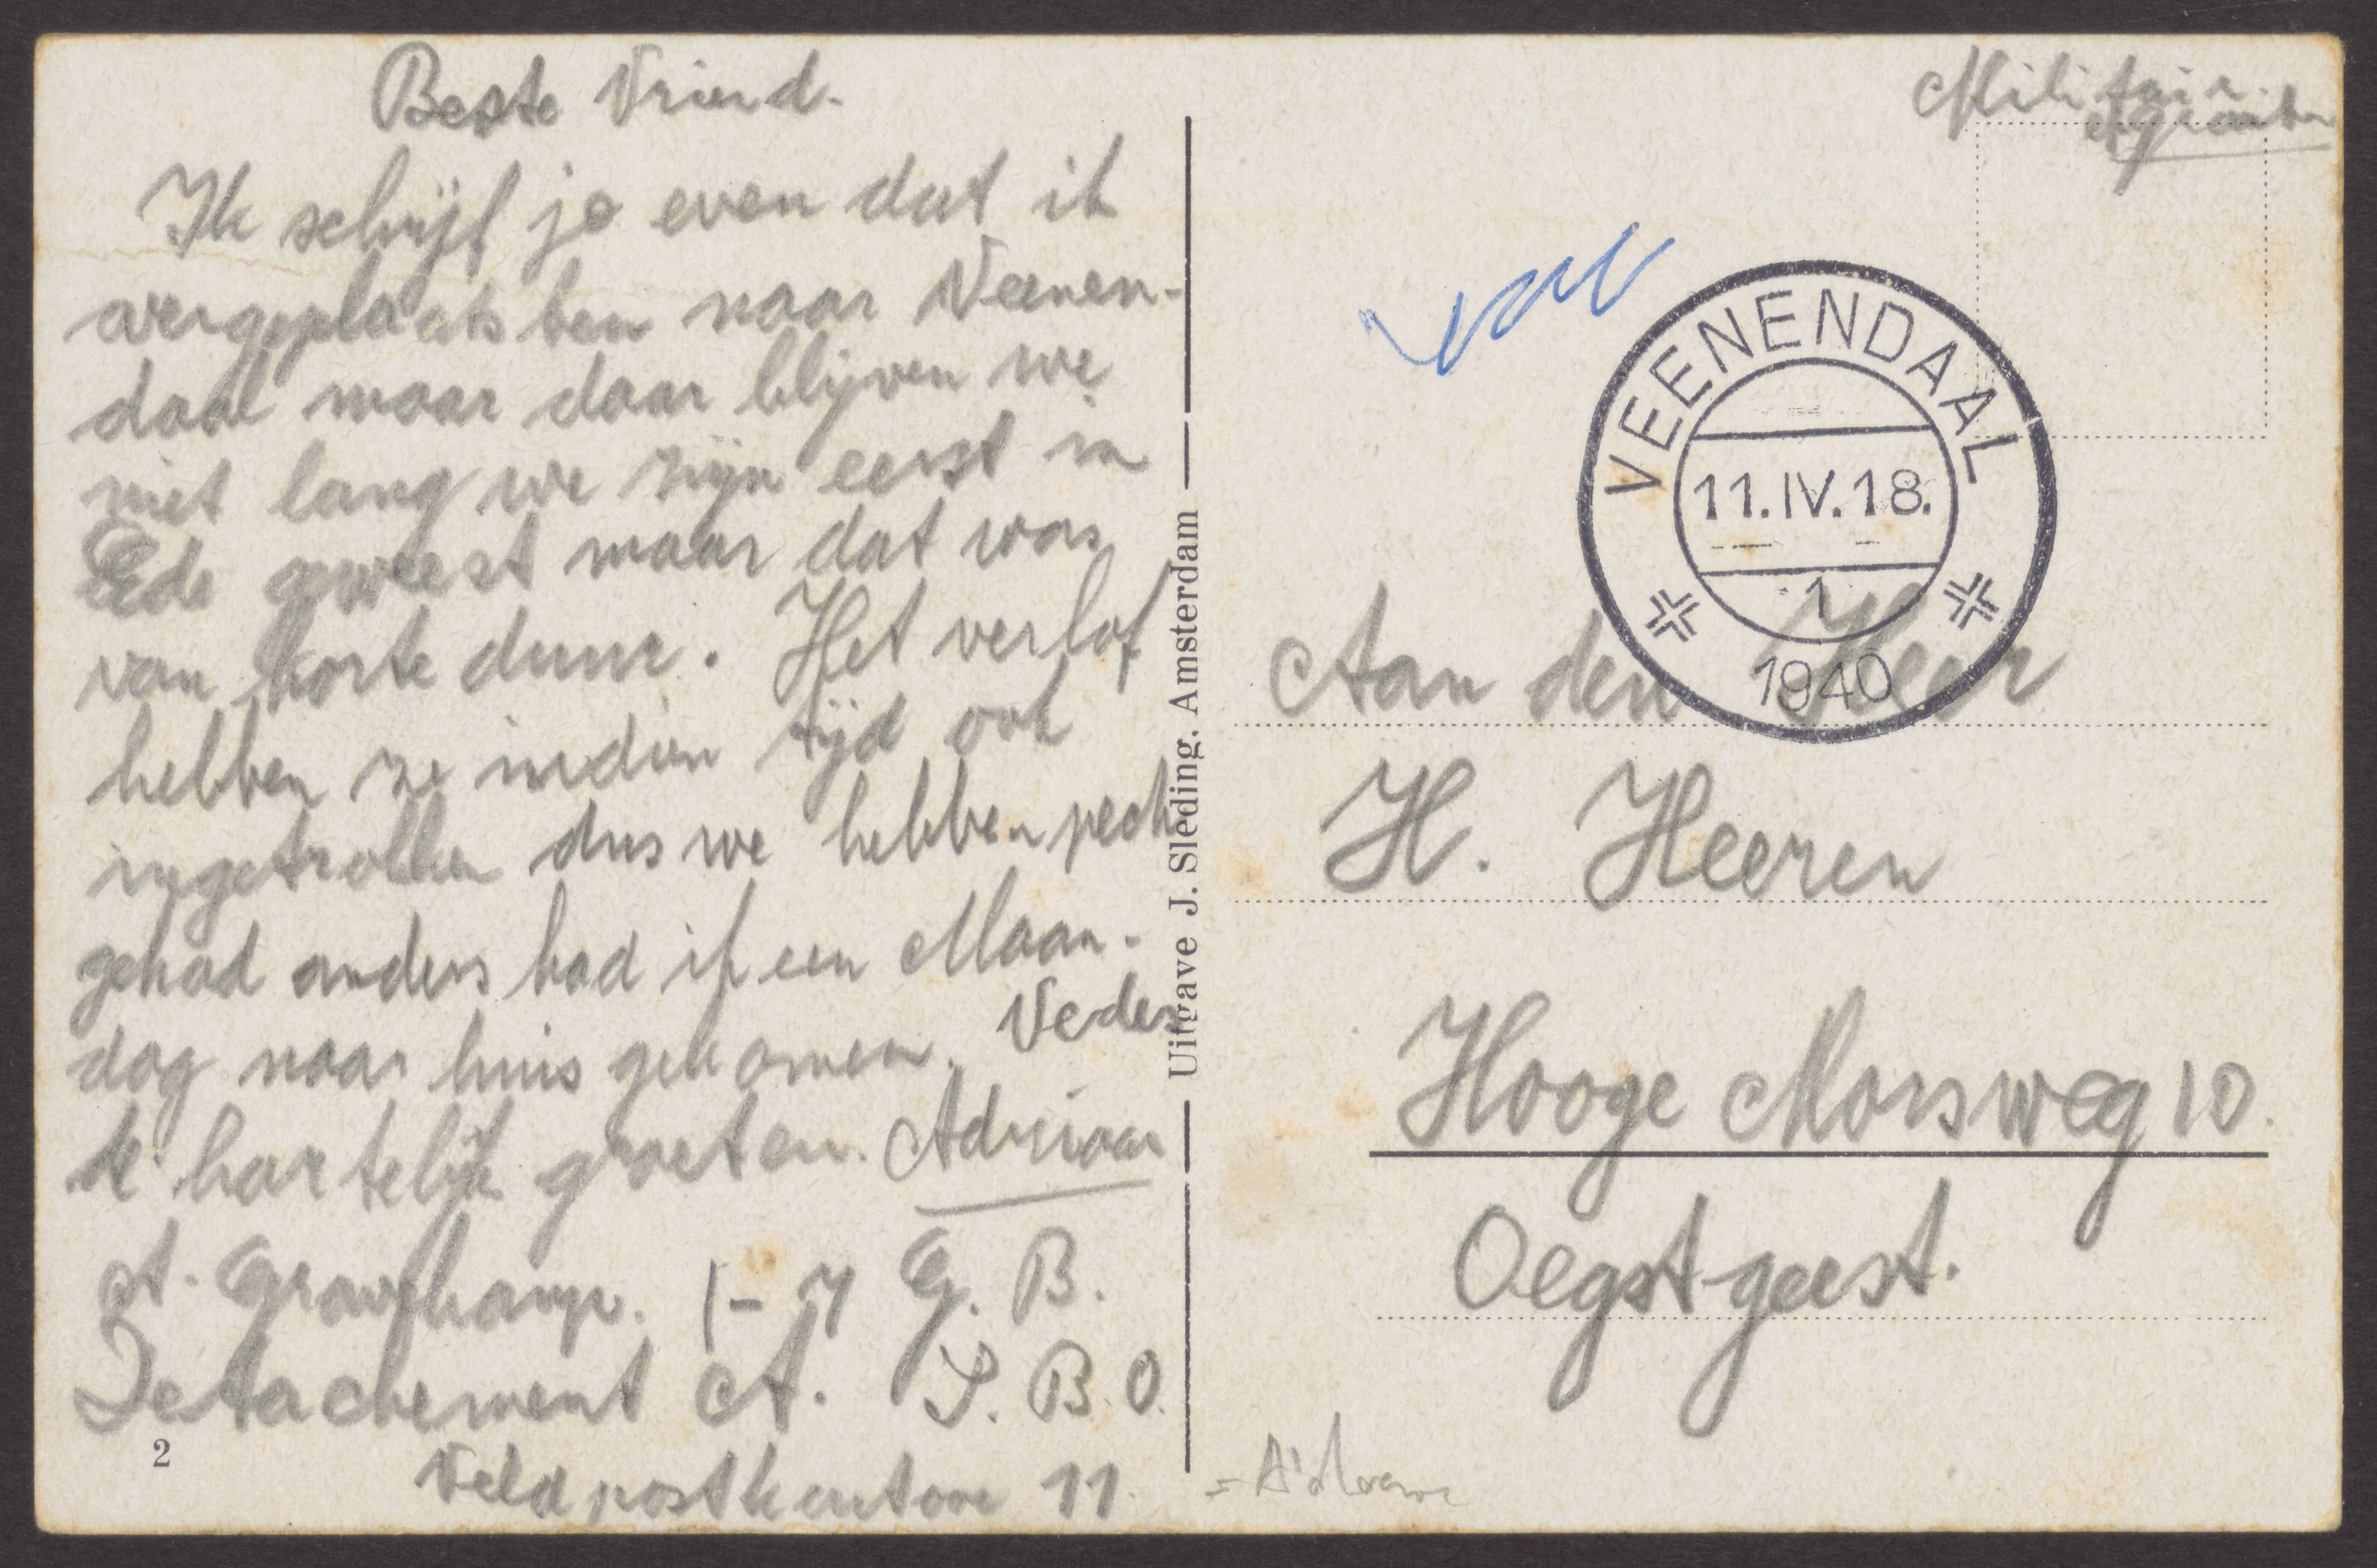 Beste Vriend.
Ik schrijf je even dat ik
overgeplaats ben naar Veenen-
daal maar daar blijven we
niet lang we zijn eerst in
Ede geweest maar dat was
van korte duur. Het verlof
hebben ze in dien tijd ook
ingetrokken dus we hebben pech
gehad anders had ik een Maan-
dag naar huis gekomen. Verder
de hartelijk groeten. Adriaan
A. Gravekamp. 1-7 G. B.
Detachement A. P. B. O.
Veldpostkantoor 11
2
Uitgave J. Sleding, Amsterdam
Militair
VEENENDAAL
11.IV.18.
1
1940
Aan den Heer
H. Heeren
Hooge Morsweg 10.
Oegstgeest.